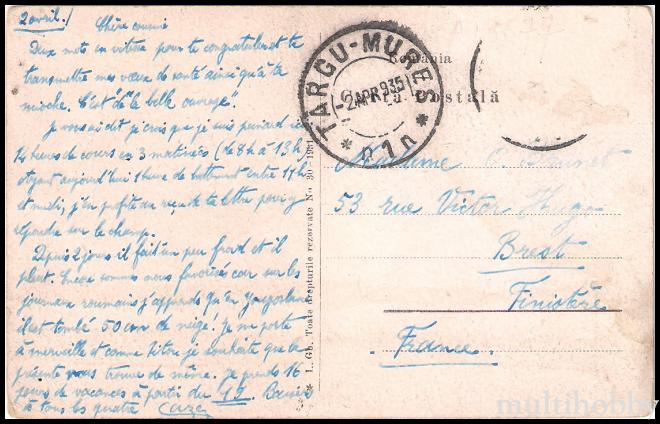 2 avril/ Chère cousine
Deux mots en vitesse pour te congratuler et te
transmettre mes vœux de santé ainsi qu'à ta
mioche. C'est "de la belle ouvrage".
Je vous ai dit je crois que je suis
14 heures de cours en 3 matinées (de 8h à 13h
ayant aujourd'hui 1 heure de battement entre 11h
et midi, j'en profite au reçu de ta lettre pour y
répondre sur le champ.
Depuis 2 jours il fait un peu froid et il
pleut. Encore sommes nous favorisés car sur les
journaux roumains j'apprends qu'en Yougoslavie
il est tombé 50 cm de neige! Je me porte
à merveille et comme je souhaite que la
présente vous trouve de même. Je prends 16
jours de vacances à partir du 19. Baisers
à tous les quatre
* I. Gh. Toate drepturile rezervate No. 30-1931
TÂRGU-MUREȘ
-2 APR 935
* *
România
Carta Postală
Madame
53 rue Victor Hugo
Brest
Finistère
France
multihobby